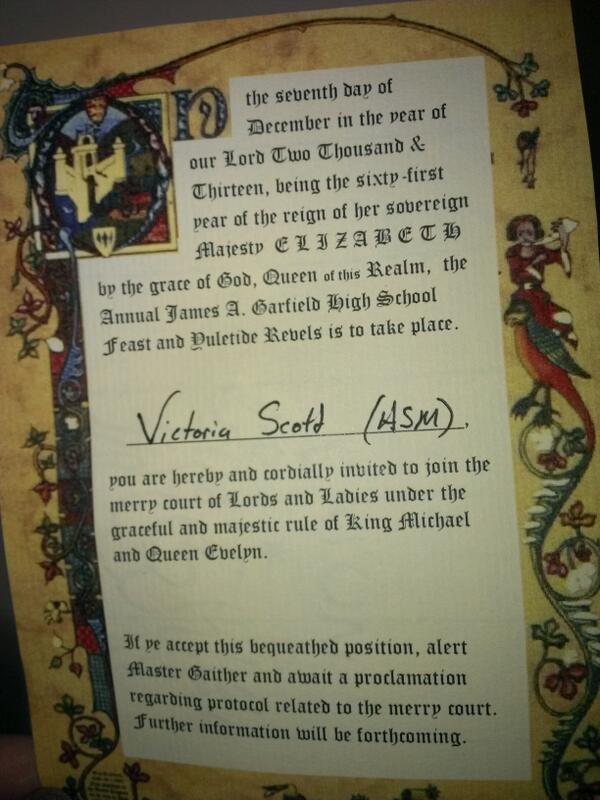 In the seventh day of
December in the year of
our Lord Two Thousand &
Thirteen, being the sixty-first
year of the reign of her sovereign
Majesty ELIZABETH
by the grace of God, Queen of this Realm, the
Annual James A. Garfield High School
Feast and Yuletide Revels is to take place.
Victoria Scott (ASM),
you are hereby and cordially invited to join the
merry court of Lords and Ladies under the
graceful and majestic rule of King Michael
and Queen Evelyn.
If ye accept this bequeathed position, alert
Master Gaither and await a proclamation
regarding protocol related to the merry court.
Further information will be forthcoming.